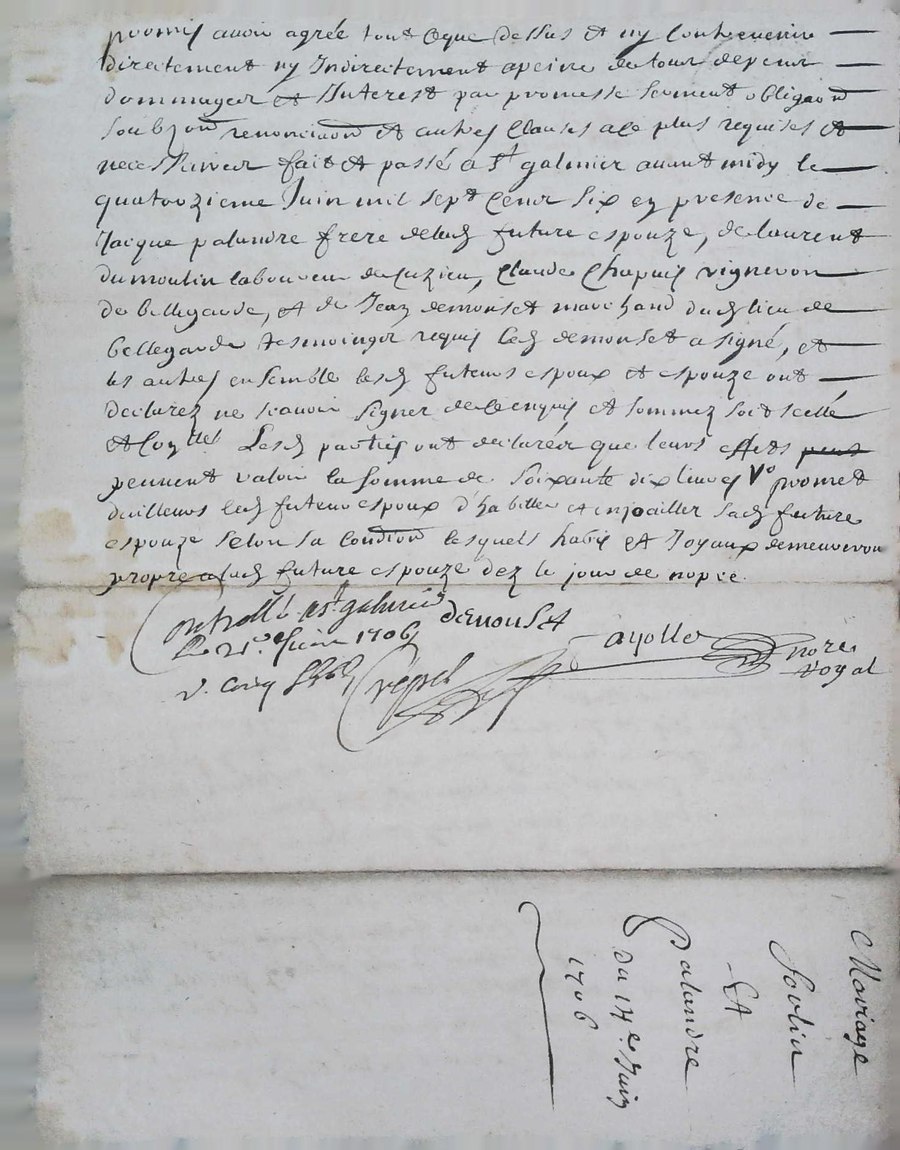 promis avoir agrée tout ce que dessus et ny contrevenir
directement ny Indirectement a peine de tous depens
dommages et Interest par promesse serment obliga[ti]on
soubzon renonciaon et autres clauses a ce plus requises et
necessaires fait et passé a St galmier avant midy le
quatorzieme Juin mil sept cent six en presence de
Jacque palandre frere de lad future espouze, de laurent
dumoulin laboureur de cuzieu, Claude Chapuis vigneron
de bellegarde, et de Jean demonset marchand dud lieu de
bellegarde tesmoingts requis led demonset a signé, et
les autres ensemble lesd futeurs espoux et espouze ont
declarez ne scavoir signer de ce enquis et sommez soit scellé
et con.llé Lesd parties ont declarées que leurs effets peut
peuvent valoir la somme de soixante dix livres Vo promet
dailleurs led futeur espoux d'habiller et enjoailler sad future
espouze selon sa condition lesquels habis et Joyaux demeureron
propre a lad future espouze dez le jour de nopce.
Controllé a St galmier demonset
Le 21.e Juin 1706 ayolle nore
r. cinq Crepet royal
Mariage
Soulier
Et
Palandre
Du 14e Juin
1706